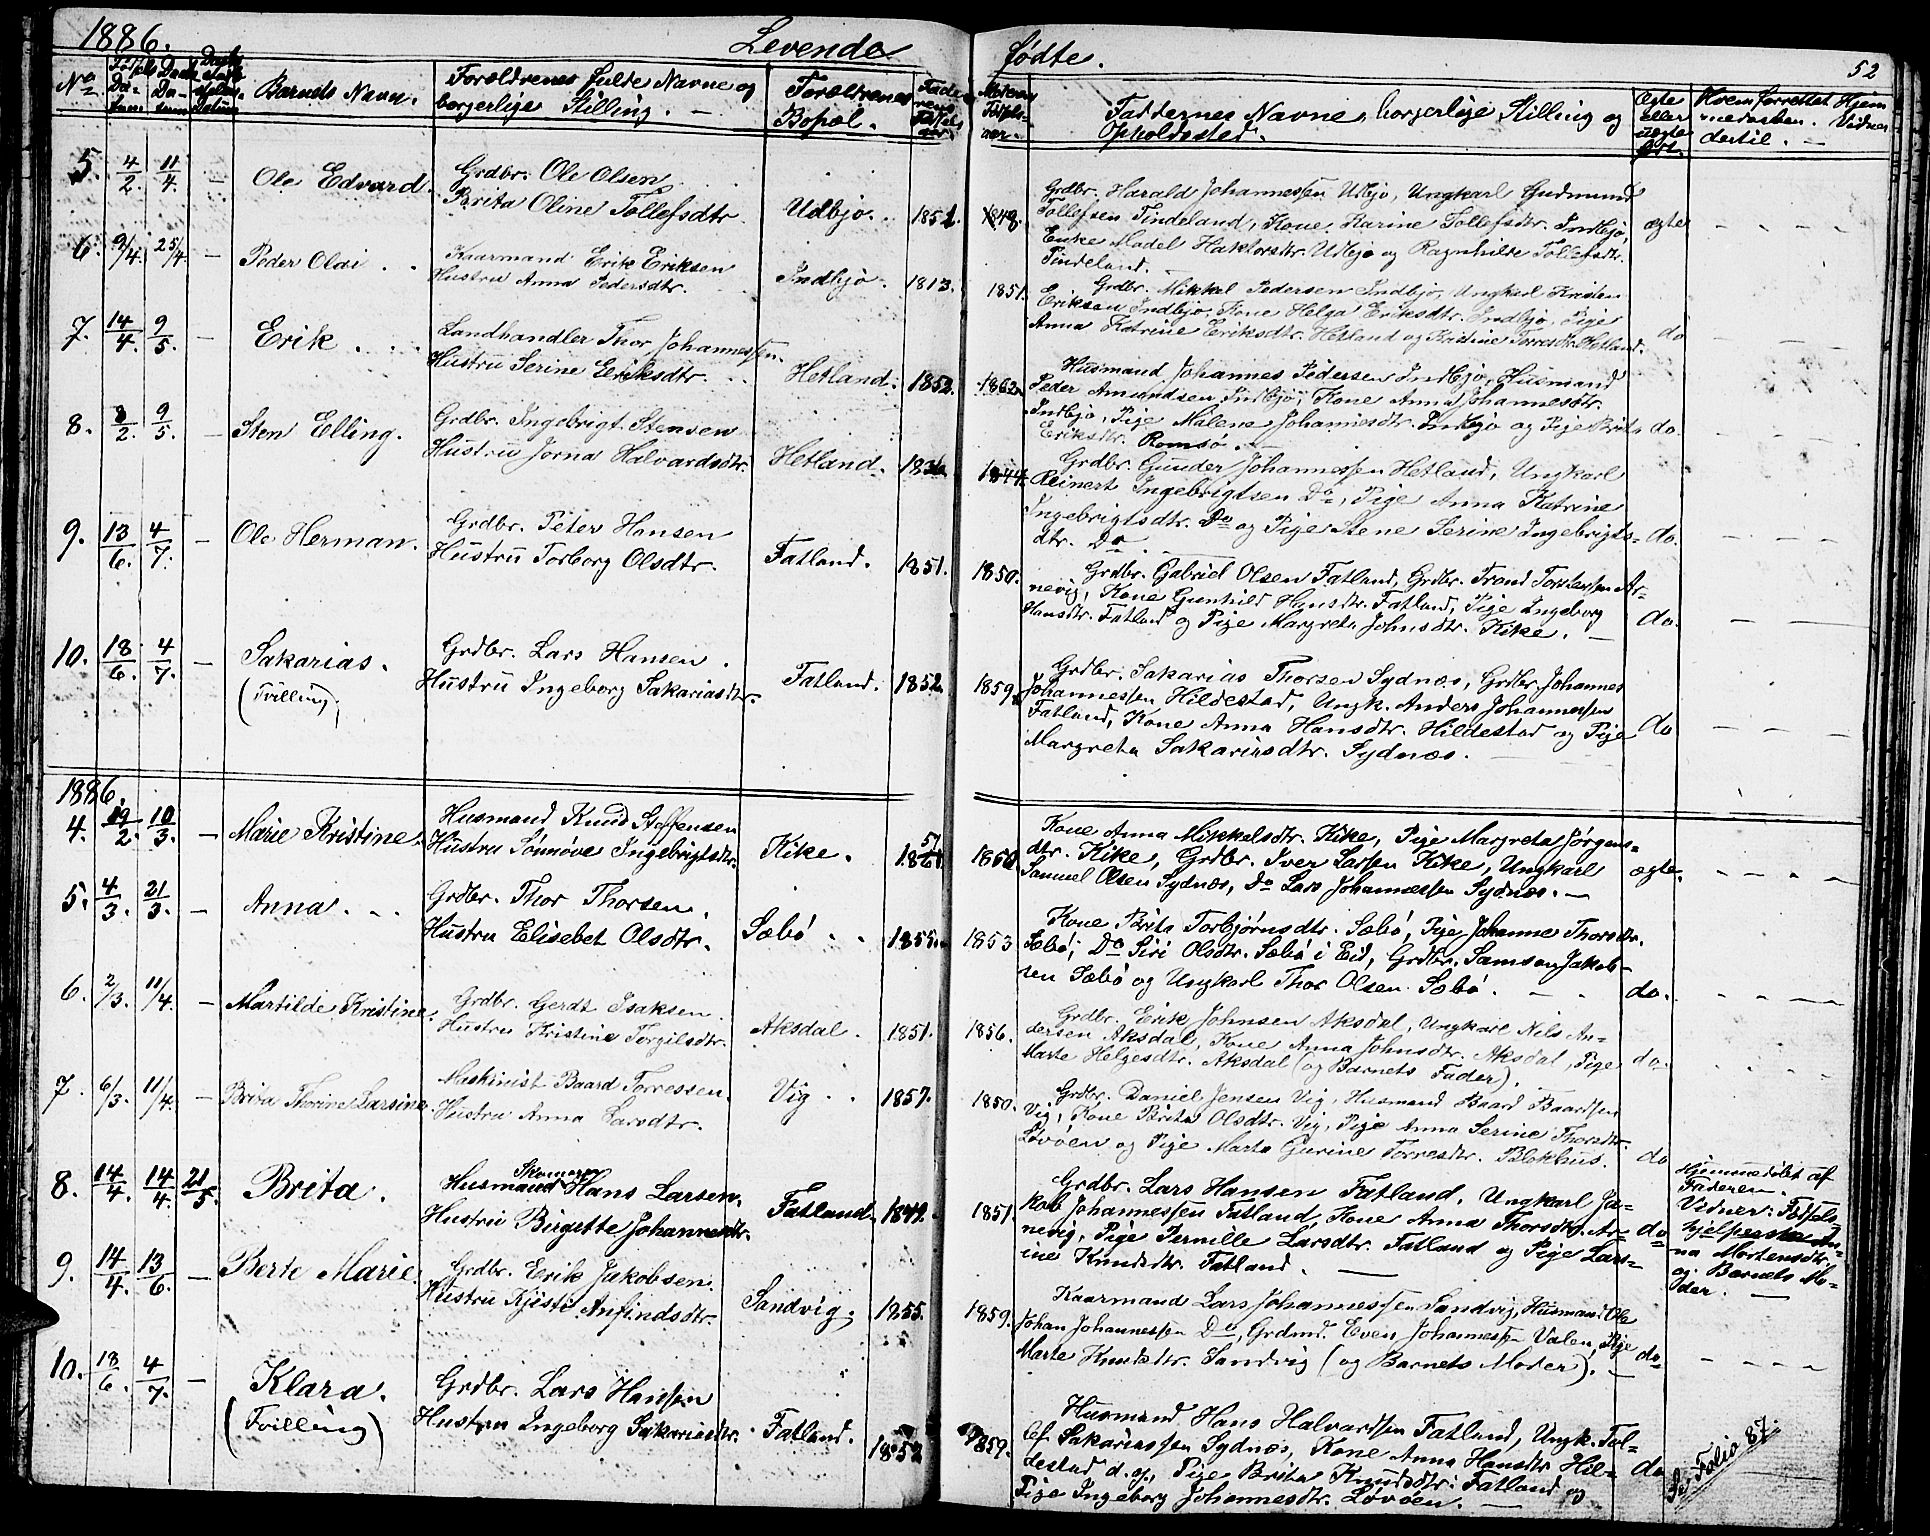 1886. Levende fødte. 52
No Fødsels Datum Daabs Datum Barnets Navn. Forældrenes fulde Navne og borgerlige Stilling. Forældrenes Bopæl. Faderens Fødselsaar Moderens Fødselsaar. Faddernes Navne, borgerlige Stilling og Opholdssted. Ægte eller uægte født. Hvem forrettet Hjemmedaaben. Vidner dertil.
5. 4/2. 11/4. — Ole Edvard. Grdbr. Ole Olsen
Brita Oline Tollefsdtr. Udbjo. 1851. 1848.
Grdbr. Harald Johannessen Udbjo, Ungkarl Gudmund
Tollefsen Tindeland, Kone Karine Tollefsdtr. Indbjo,
Enke Madel Haktorsdtr. Udbjo og Ragnhilde Tollefsdtr.
Tindeland. ægte
6. 9/4. 25/4. — Peder Olai . . Kaarmand Erik Eriksen
Hustru Anna Pedersdtr. Indbjo. 1813. 1851.
Grdbr. Mikkel Pedersen Indbjo, Ungkarl Kristen
Eriksen Indbjo, Kone Helga Eriksdtr. Indbjo, Pige
Anna Katrine Eriksdtr. Hetland og Kristine Torresdtr. Hetland. do
7. 14/4. 9/5. — Erik . . . Landhandler Thor Johannessen.
Hustru Serine Eriksdtr. . . Hetland. 1852. 1862.
Husmand Johannes Pedersen Indbjo, Husmand
Peder Amundsen Indbjo, Kone Anna Johannesdtr.
Indbjo, Pige Malene Johannesdtr. Indbjo og Pige Brita
Eriksdtr. Romsø. do.
8. 8/2. 9/5. — Sten Elling. Grdbr. Ingebrigt Stensen
Hustru Jorna Halvardsdtr. Hetland. 1836. 1844.
Grdbr. Gunder Johannessen Hetland, Ungkarl
Reinert Ingebrigtsen Do, Pige Anna Katrine
Ingebrigtsdtr. Do og Pige Stene Serine Ingebrigts=
dtr. Do. do.
9. 13/6. 4/7. — Ole Herman. Grdbr. Peter Hansen
Hustru Torborg Olsdtr. Fatland. 1851. 1850.
Grdbr. Gabriel Olsen Fatland, Grdbr. Trond Torstensen Ar-
nevig, Kone Gunhild Hansdtr. Fatland, Pige Ingeborg
Hansdtr. Fatland og Pige Margreta Johnsdtr. Kike. — do.
10. 18/6. 4/7. — Sakarias. Grdbr. Lars Hansen.
(Tvilling) Hustru Ingeborg Sakariasdtr. Fatland. 1852. 1859.
Grdbr. Sakarias Thorsen Sydnæs, Grdbr. Johannes
Johannessen Hildestad, Ungk. Anders Johannessen
Fatland, Kone Anna Hansdtr. Hildestad og Pige
Margreta Sakariasdtr. Sydnæs. do
1886
4. 19/2. 10/3. — Marie Kristine. Husmand Knud Steffensen
Hustru Sønnøve Ingebrigtsdtr. Kike.
Kone Anna Mikkelsdtr. Kike, Pige Margreta Jørgens=
dtr. Kike, Grdbr. Iver Larsen Kike, Ungkarl
Samuel Olsen Sydnæs, Do Lars Johannessen Sydnæs. — ægte.
5. 4/3. 21/3. — Anna . . . Grdbr. Thor Thorsen.
Hustru Elisebet Olsdtr. Sæbø . . 1855. 1853
Kone Brita Torbjørnsdtr. Sæbø, Pige Johanne Thorsdtr.
Sæbø, Do Siri Olsdtr. Sæbø i Eid, Grdbr. Samson Jakob-
sen Sæbø og Ungkarl Thor Olsen Sæbø. do.
6. 2/3. 11/4. — Martilde Kristine. Grdbr. Gerdt Isaksen.
Hustru Kristine Torgilsdtr. Aksdal. 1851. 1856.
Grdbr. Erik Johnsen Aksdal, Ungkarl Nils An-
dersen Aksdal, Kone Anna Johnsdtr. Aksdal, Pige
Marte Helgesdtr. Aksdal (og Barnets Fader). do.
7. 6/3. 11/4. — Brita Thorine Larsine. Maskinist Baard Torressen.
Hustru Anna Larsdtr. Vig . . 1857. 1850.
Grdbr. Daniel Jensen Vig, Husmand Baard Baardsen
Vig, Kone Brita Olsdtr. Vig, Pige Anna Serine Thorsdtr.
Løvøen og Pige Marta Gurine Torresdtr. Blokhus. do
8. 14/4. 14/4. 21/5. Brita. Husmand Hans Larsen.
Hustru Birgitte Johannesdtr. Fatland. 1849. 1851.
Grdbr. Lars Hansen Fatland, Ungkarl Ja-
kob Johannessen Fatland, Kone Anna Thorsdtr. Ar-
nevig, Pige Pernille Larsdtr. Fatland og Pige Lars-
ine Knudsdtr. Fatland. do
Hjemmedøbt af
Faderen.
Vidner: Fødsels
hjelperske An-
na Mortensdtr.
og Barnets Mo-
der. —
9. 14/4. 13/6. — Berte Marie. Grdbr. Erik Jakobsen.
Hustru Kjisti Anfindsdtr. Sandvig. 1855. 1859.
Kaarmand Lars Johannessen Sandvig, Husmand Ole
Johan Johannessen Do, Grdmd. Even Johannessen Valen, Pige
Marte Knudsdtr. Sandvig (og Barnets Moder). do.
10. 18/6. 4/7. — Klara. Grdbr. Lars Hansen
(Tvilling) Hustru Ingeborg Sakariasdtr. Fatland. 1852 1859.
Husmand Hans Halvardsen Fatland, Ungk. Tol=
lef Sakariassen Sydnæs, Kone Anna Hansdtr. Hil=
destad d. g., Pige Brita Knudsdtr. Fatland og
Pige Ingeborg Johannesdtr. Løvøen. — do
Se Folio 87.